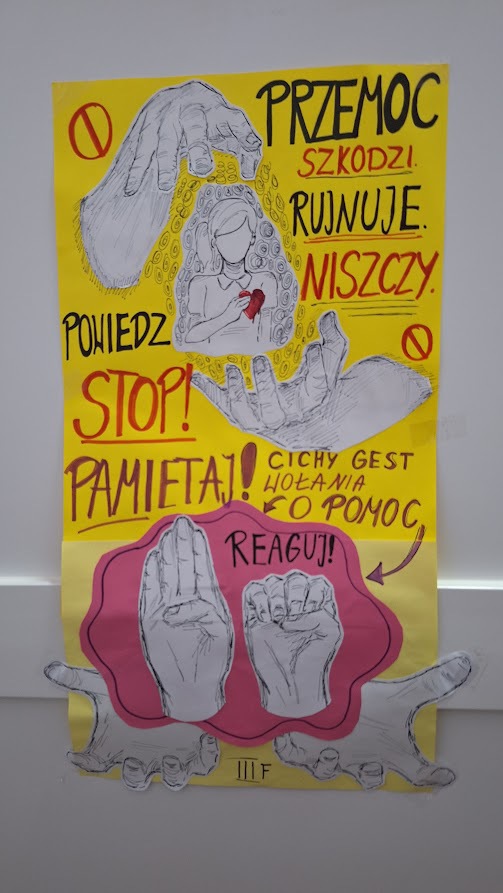 PRZEMOC
SZKODZI.
RUJNUJE.
NISZCZY.
POWIEDZ
STOP!
PAMIETAJ!
CICHY GEST
WOŁANIA
O POMOC
REAGUJ!
III F